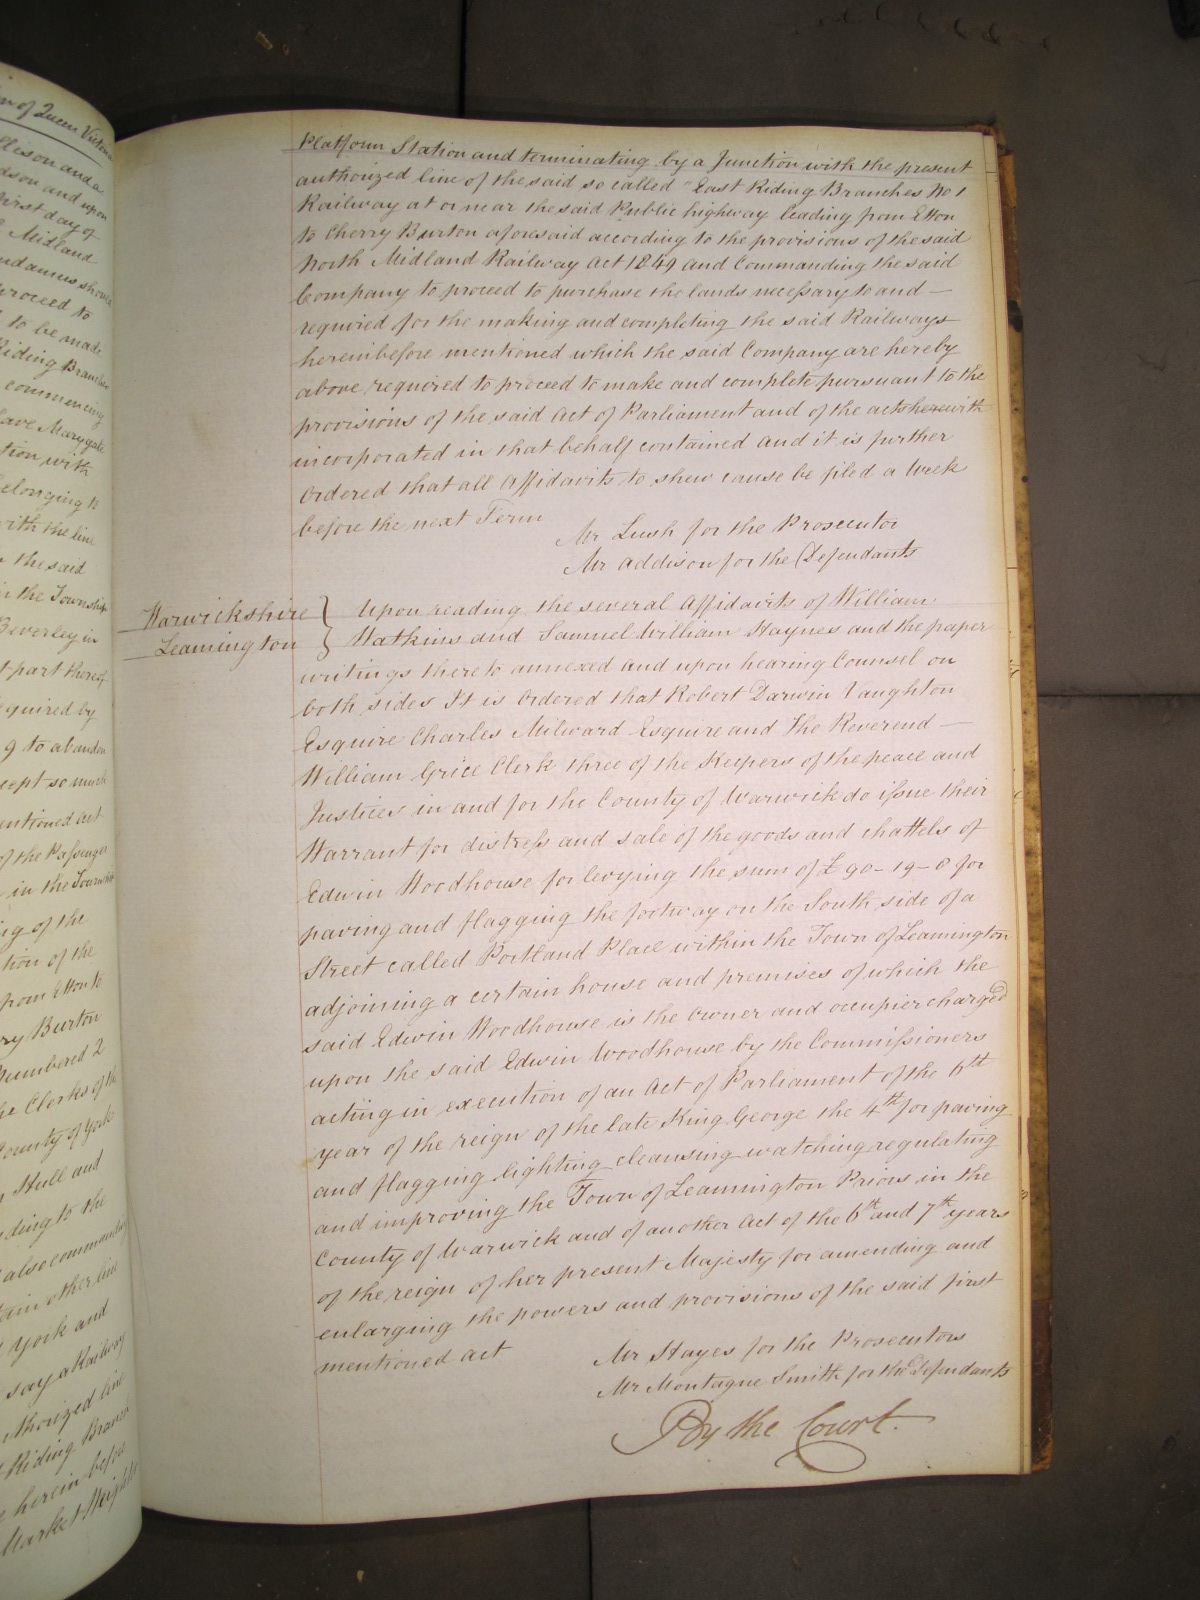 on of Queen Victoria
lleson and a
dson and upon
first day of
Midland
ndamus should
proceed to
to be made
Riding Branches
commencing
ave Marygate
tion with
belonging to
with the line
the said
in the Township
Beverley in
t part thereof
quired by
9 to abandon
cept so much
entioned act
of the Passenger
in the Township
ig of the
tion of the
from Etton to
ry Burton
Numbered 2
he Clerks of the
County of York
Hull and
ding to the
also commanding
tain other line
York and
say a Railway
uthorized line
Riding Branch
herein before
Market Weighton
Platform Station and terminating by a Junction with the present
authorized line of the said so called "East Riding Branches No 1
Railway at or near the said Public highway leading from Etton
to Cherry Burton aforesaid according to the provisions of the said
North Midland Railway Act 1849 and Commanding the said
Company to proceed to purchase the lands necessary to and —
required for the making and completing the said Railways
hereinbefore mentioned which the said Company are hereby
above required to proceed to make and complete pursuant to the
provisions of the said Act of Parliament and of the acts herewith
incorporated in that behalf contained and it is further
Ordered that all Affidavits to shew cause be filed a Week
before the next Term
Mr Lush for the Prosecutor
Mr Addison for the Defendants
Warwickshire } Upon reading the several Affidavits of William
Leamington } Watkins and Samuel William Haynes and the paper
writings thereto annexed and upon hearing Counsel on
both sides It is Ordered that Robert Darwin Vaughton
Esquire Charles Milward Esquire and The Reverend —
William Grice Clerk three of the Keepers of the peace and
Justices in and for the County of Warwick do issue their
Warrant for distress and sale of the goods and chattels of
Edwin Woodhouse for levying the sum of £90-19-0 for
paving and flagging the footway on the South side of a
Street called Portland Place within the Town of Leamington
adjoining a certain house and premises of which the
said Edwin Woodhouse is the Owner and occupier charged
upon the said Edwin Woodhouse by the Commissioners
acting in execution of an Act of Parliament of the 6th
year of the reign of the late King George the 4th for paving
and flagging lighting cleansing watching regulating
and improving the Town of Leamington Priors in the
County of Warwick and of another Act of the 6th and 7th years
of the reign of her present Majesty for amending and
enlarging the powers and provisions of the said first
mentioned act
Mr Hayes for the Prosecutors
Mr Montague Smith for the Defendants
By the Court.